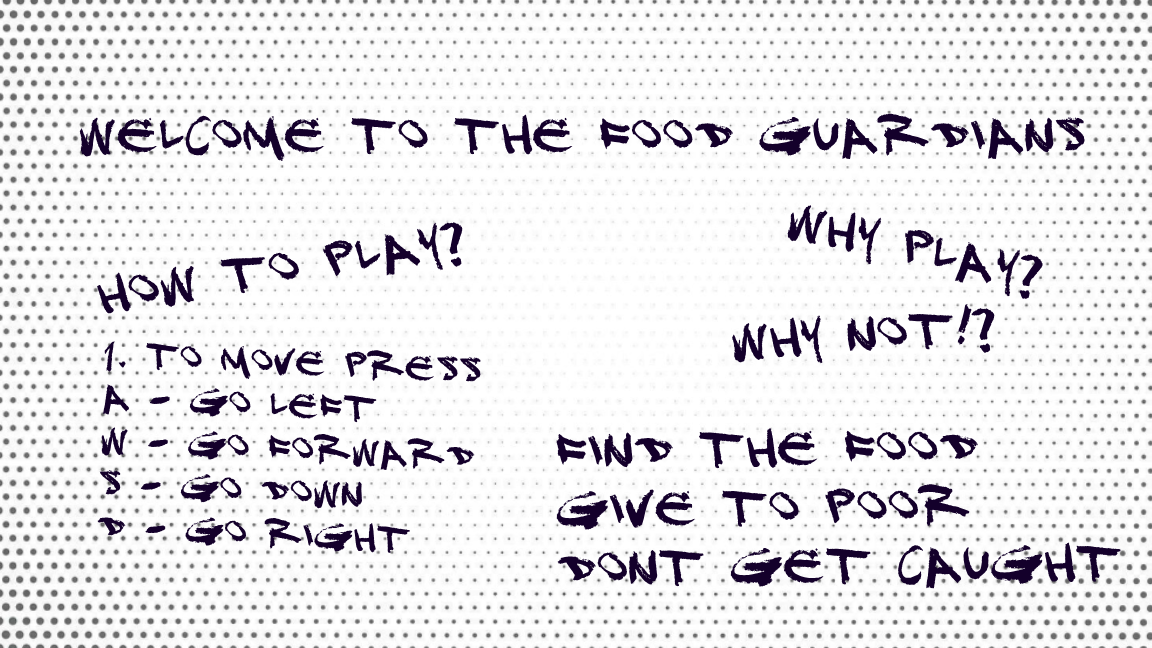 WELCOME TO THE FOOD GUARDIANS
HOW TO PLAY?
1. TO MOVE PRESS
A - GO LEFT
W - GO FORWARD
S - GO DOWN
D - GO RIGHT
WHY PLAY?
WHY NOT!?
FIND THE FOOD
GIVE TO POOR
DONT GET CAUGHT